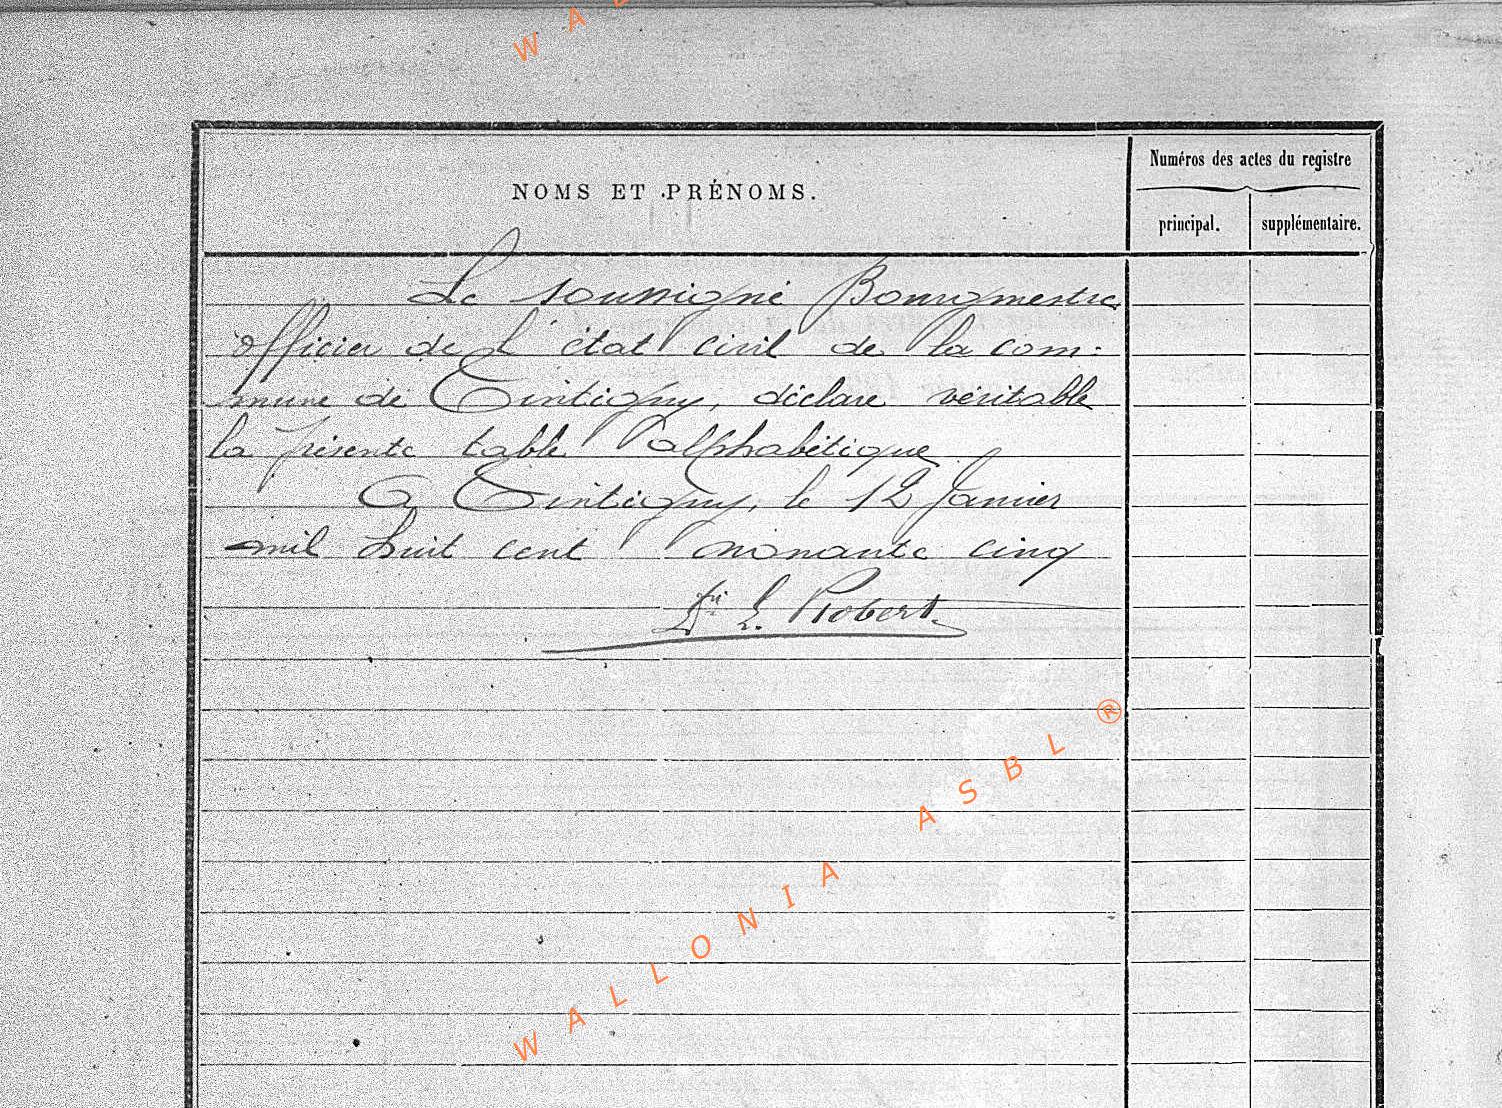 W A L
NOMS ET PRÉNOMS.
Numéros des actes du registre
principal.
supplémentaire.
Le soussigné Bourgmestre
officier de l'état civil de la com-
mune de Tintigny, déclare véritable
la présente table alphabétique
A Tintigny, le 12 Janvier
mil huit cent nonante cinq
L. Robert
WALLONIA ASBL ®